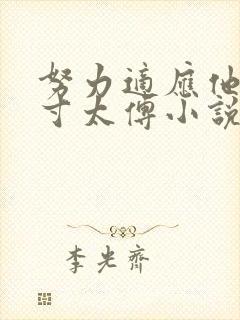 努力適應他
寸太傅小説
李光齊